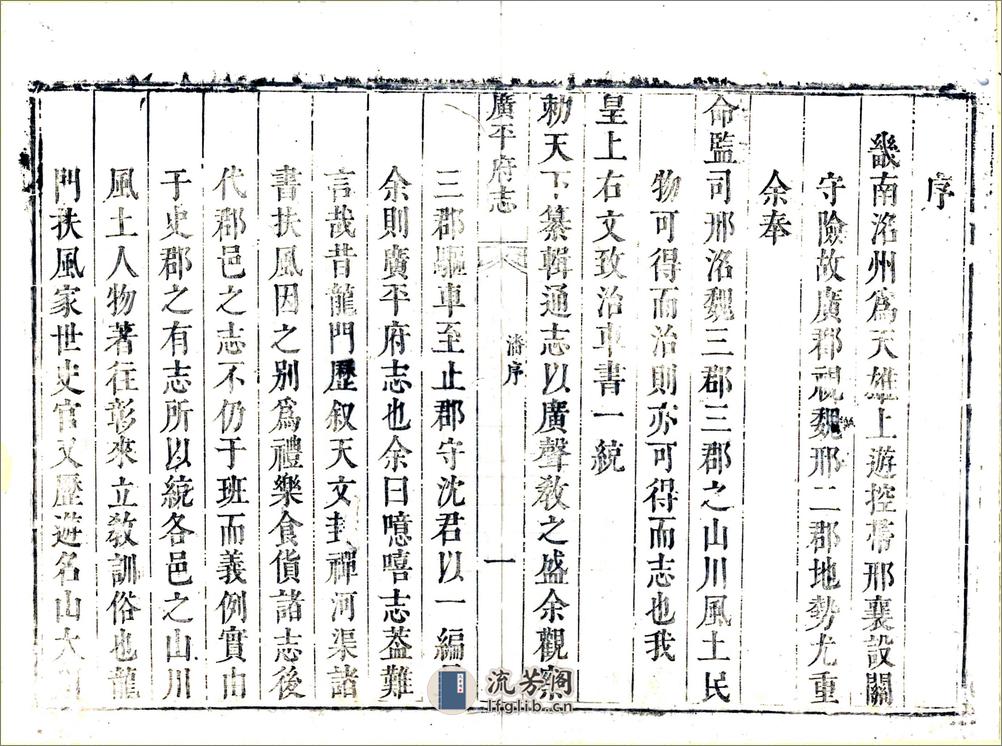 序
畿南洺州爲天雄上遊控帶邢襄設關
守險故廣郡視魏邢二郡地勢尤重
余奉
命監司邢洺魏三郡三郡之山川風土民
物可得而治則亦可得而志也我
皇上右文致治車書一統
勅天下纂輯通志以廣聲教之盛余觀察
廣平府志
潘序
一
三郡驅車至止郡守沈君以一編
余則廣平府志也余曰噫嘻志葢難
言哉昔龍門歷叙天文封禪河渠諸
書扶風因之别爲禮樂食貨諸志後
代郡邑之志不仍于班而義例實由
于史郡之有志所以統各邑之山川
風土人物著往彰來立教訓俗也龍
門扶風家世史官又歷遊名山大
流芳阁
lfglib.cn